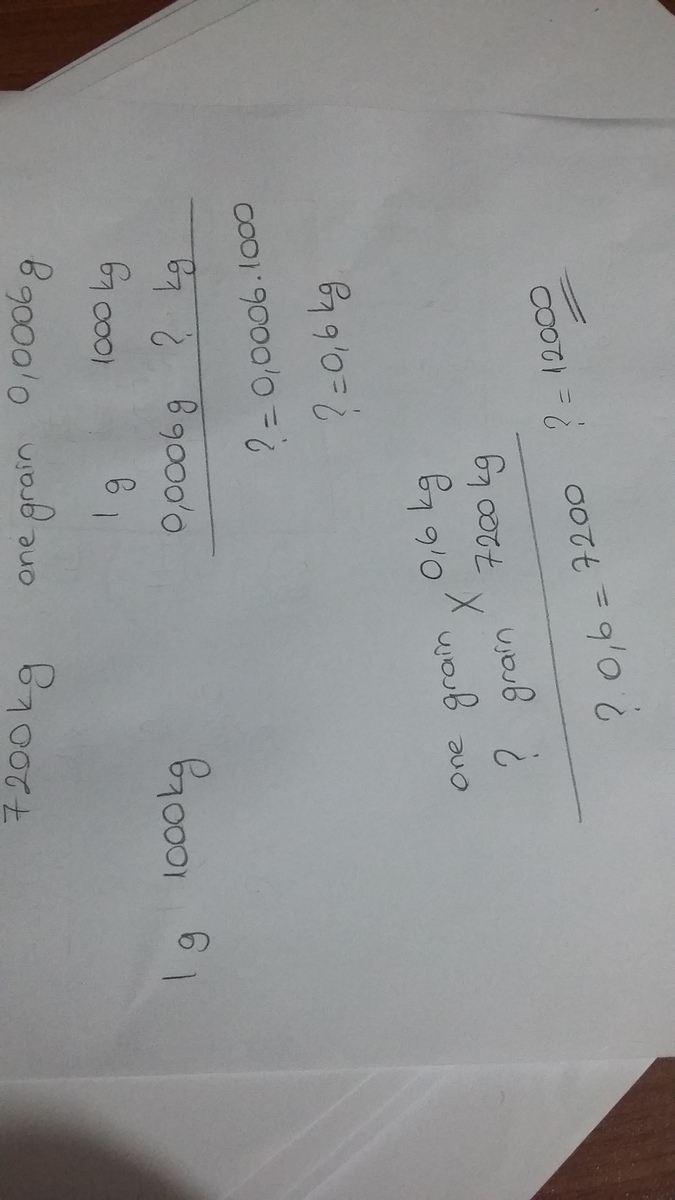 7200 kg one grain 0,0006 g
1 g 1000 kg
1 g 1000 kg
0,0006 g ? kg
? = 0,0006.1000
? = 0,6 kg
one grain X 0,6 kg
? grain 7200 kg
?. 0,6 = 7200 ? = 12000